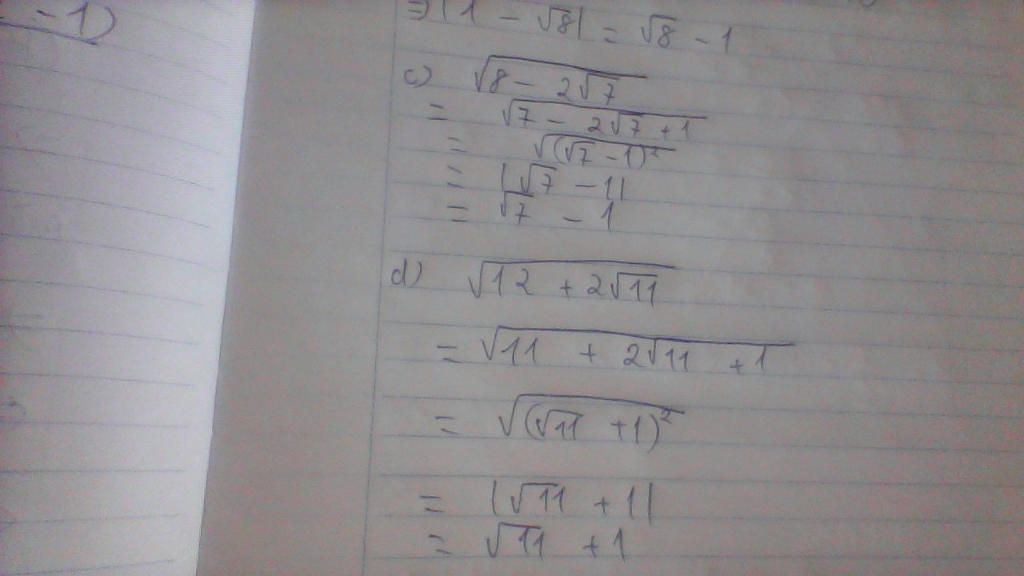 - 1)
=> |1 - √8| = √8 - 1
c) √(8 - 2√7)
= √(7 - 2√7 + 1)
= √((√7 - 1)²)
= |√7 - 1|
= √7 - 1
d) √(12 + 2√11)
= √(11 + 2√11 + 1)
= √((√11 + 1)²)
= |√11 + 1|
= √11 + 1